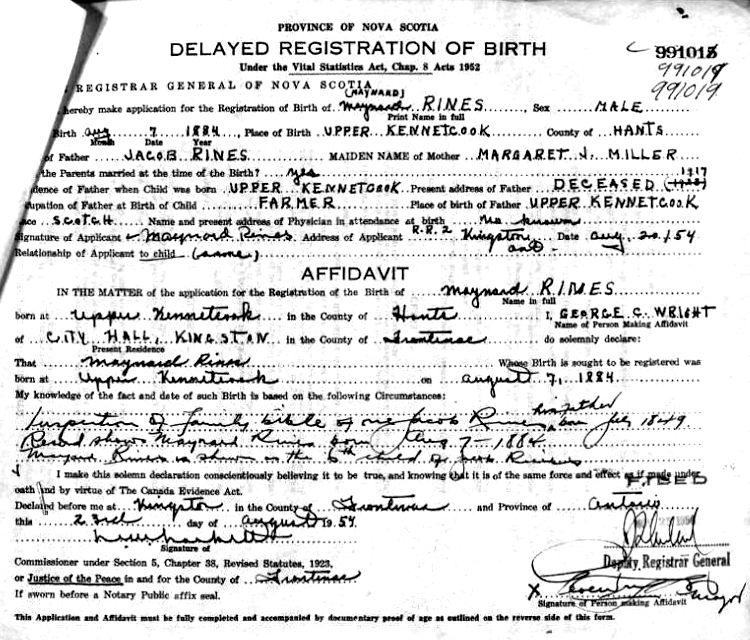 PROVINCE OF NOVA SCOTIA
DELAYED REGISTRATION OF BIRTH
Under the Vital Statistics Act, Chap. 8 Acts 1952
991018
991019
991019
REGISTRAR GENERAL OF NOVA SCOTIA
(MAYNARD)
hereby make application for the Registration of Birth of Maynard RINES, Sex MALE
Print Name in full
Birth Aug 7 1884, Place of Birth UPPER KENNETCOOK County of HANTS
Month Date Year
of Father JACOB RINES MAIDEN NAME of Mother MARGARET J. MILLER
the Parents married at the time of the Birth? yes 1917
dence of Father when Child was born UPPER KENNETCOOK Present address of Father DECEASED
upation of Father at Birth of Child FARMER Place of birth of Father UPPER KENNETCOOK
SCOTCH Name and present address of Physician in attendance at birth known
Signature of Applicant Maynard Rines Address of Applicant R.R.2 Kingston Ont. Date Aug. 20/54
Relationship of Applicant to child (same)
AFFIDAVIT
IN THE MATTER of the application for the Registration of the Birth of Maynard RINES
Name in full
born at Upper Kennetcook in the County of Hants I, GEORGE C. WRIGHT
Name of Person Making Affidavit
of CITY HALL, KINGSTON in the County of Frontenac do solemnly declare:
Present Residence
That Maynard Rines Whose Birth is sought to be registered was
born at Upper Kennetcook on August 7, 1884.
My knowledge of the fact and date of such Birth is based on the following Circumstances:
Inspection of family bible of one Jacob Rines his father born July 1849
Record shows Maynard Rines born Aug 7 - 1884
Maynard Rines is shown as the 6th child of Jacob Rines
I make this solemn declaration conscientiously believing it to be true, and knowing that it is of the same force and effect as if made under
oath and by virtue of The Canada Evidence Act.
FILED
Declared before me at Kingston in the County of Frontenac and Province of Ontario
this 23rd day of August 1954
Signature of
Commissioner under Section 5, Chapter 38, Revised Statutes, 1923,
Deputy Registrar General
or Justice of the Peace in and for the County of Frontenac
If sworn before a Notary Public affix seal.
X Mayor
Signature of Person making Affidavit
This Application and Affidavit must be fully completed and accompanied by documentary proof of age as outlined on the reverse side of this form.